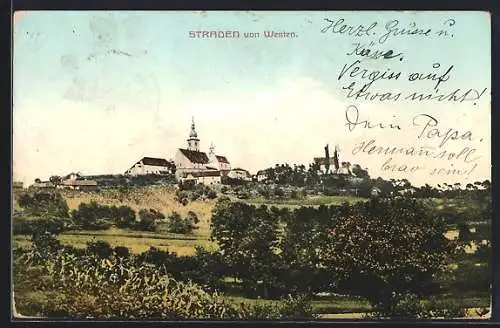 STRADEN von Westen.
Herzl. Grüsse u.
Küsse.
Vergiss auf
Etwas nicht!
Dein Papa.
Hermann soll
brav sein.